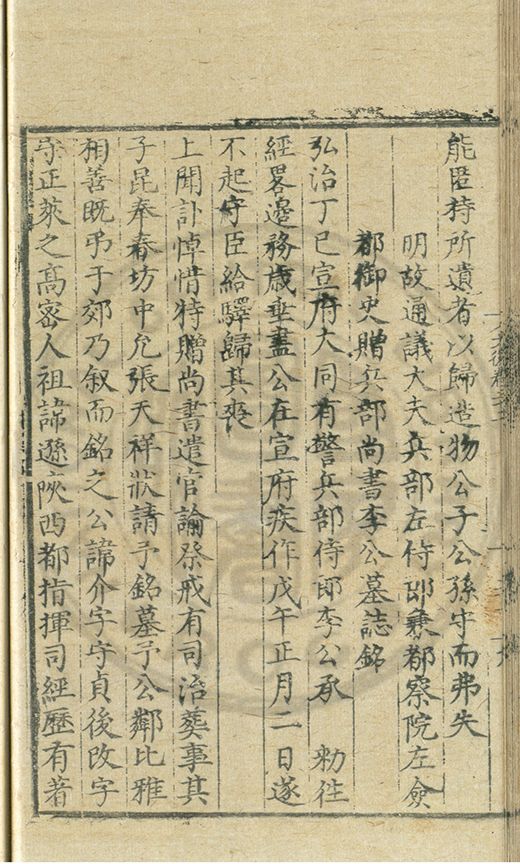 能匿特所遺者以歸造物公子公孫守而弗失
明故通議大夫兵部左侍郎兼都察院左僉
都御史贈兵部尚書李公墓誌銘
弘治丁巳宣府大同有警兵部侍郎李公承 勑徃
經畧邊務歲垂盡公在宣府疾作戊午正月二日遂
不起守臣給驛歸其喪
上聞訃悼惜特贈尚書遣官諭祭戒有司治𦵏事其
子昆奉春坊中允張天祥狀請予銘墓予公鄰比雅
相善既弔于郊乃叙而銘之公諱介字守貞後改字
守正萊之髙密人祖諱遜陝西都指揮司經歷有著